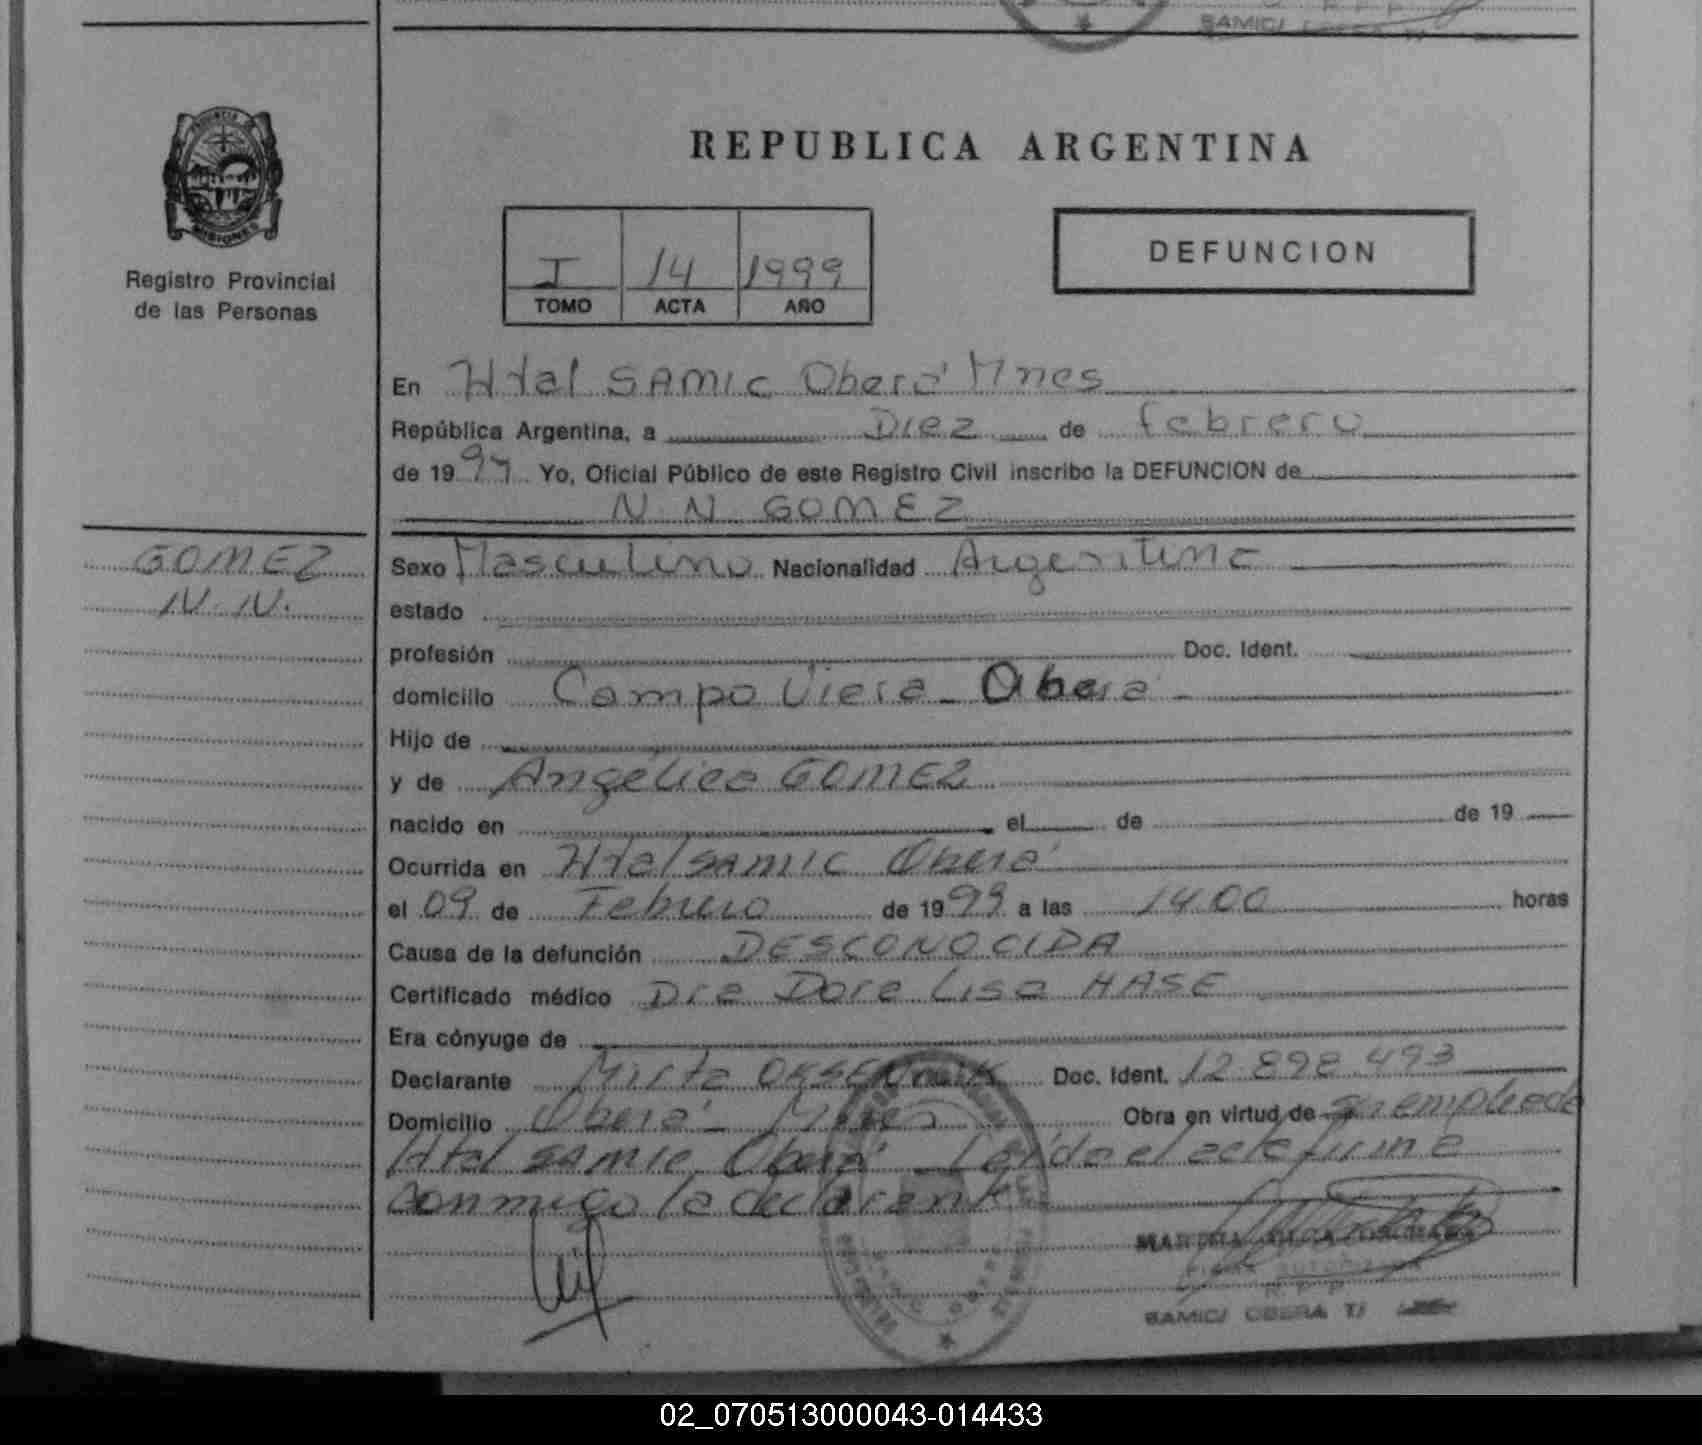 SAMIC/
REPUBLICA ARGENTINA
PROVINCIA DE
MISIONES
Registro Provincial
de las Personas
I 14 1999
TOMO ACTA AÑO
DEFUNCION
En Htal SAMIC Oberá Mnes
República Argentina, a Diez de febrero
de 1999 Yo, Oficial Público de este Registro Civil inscribo la DEFUNCION de
N N GOMEZ
GOMEZ
N. N.
Sexo Masculino Nacionalidad Argentina
estado
profesión Doc. Ident.
domicilio Campo Viera - Oberá
Hijo de
y de Angélica GOMEZ
nacido en el de de 19
Ocurrida en Htal SAMIC Oberá
el 09 de Febrero de 1999 a las 14.00 horas
Causa de la defunción DESCONOCIDA
Certificado médico Dra Dora Lisa HASE
Era cónyuge de
Declarante Mirta Doc. Ident. 12.898.493
Domicilio Oberá - Mnes Obra en virtud de ser empleada
Htal SAMIC Oberá Leída el acta firma
conmigo la declarante
MARTHA
R P P
SAMIC/ OBERA T/
02_070513000043-014433